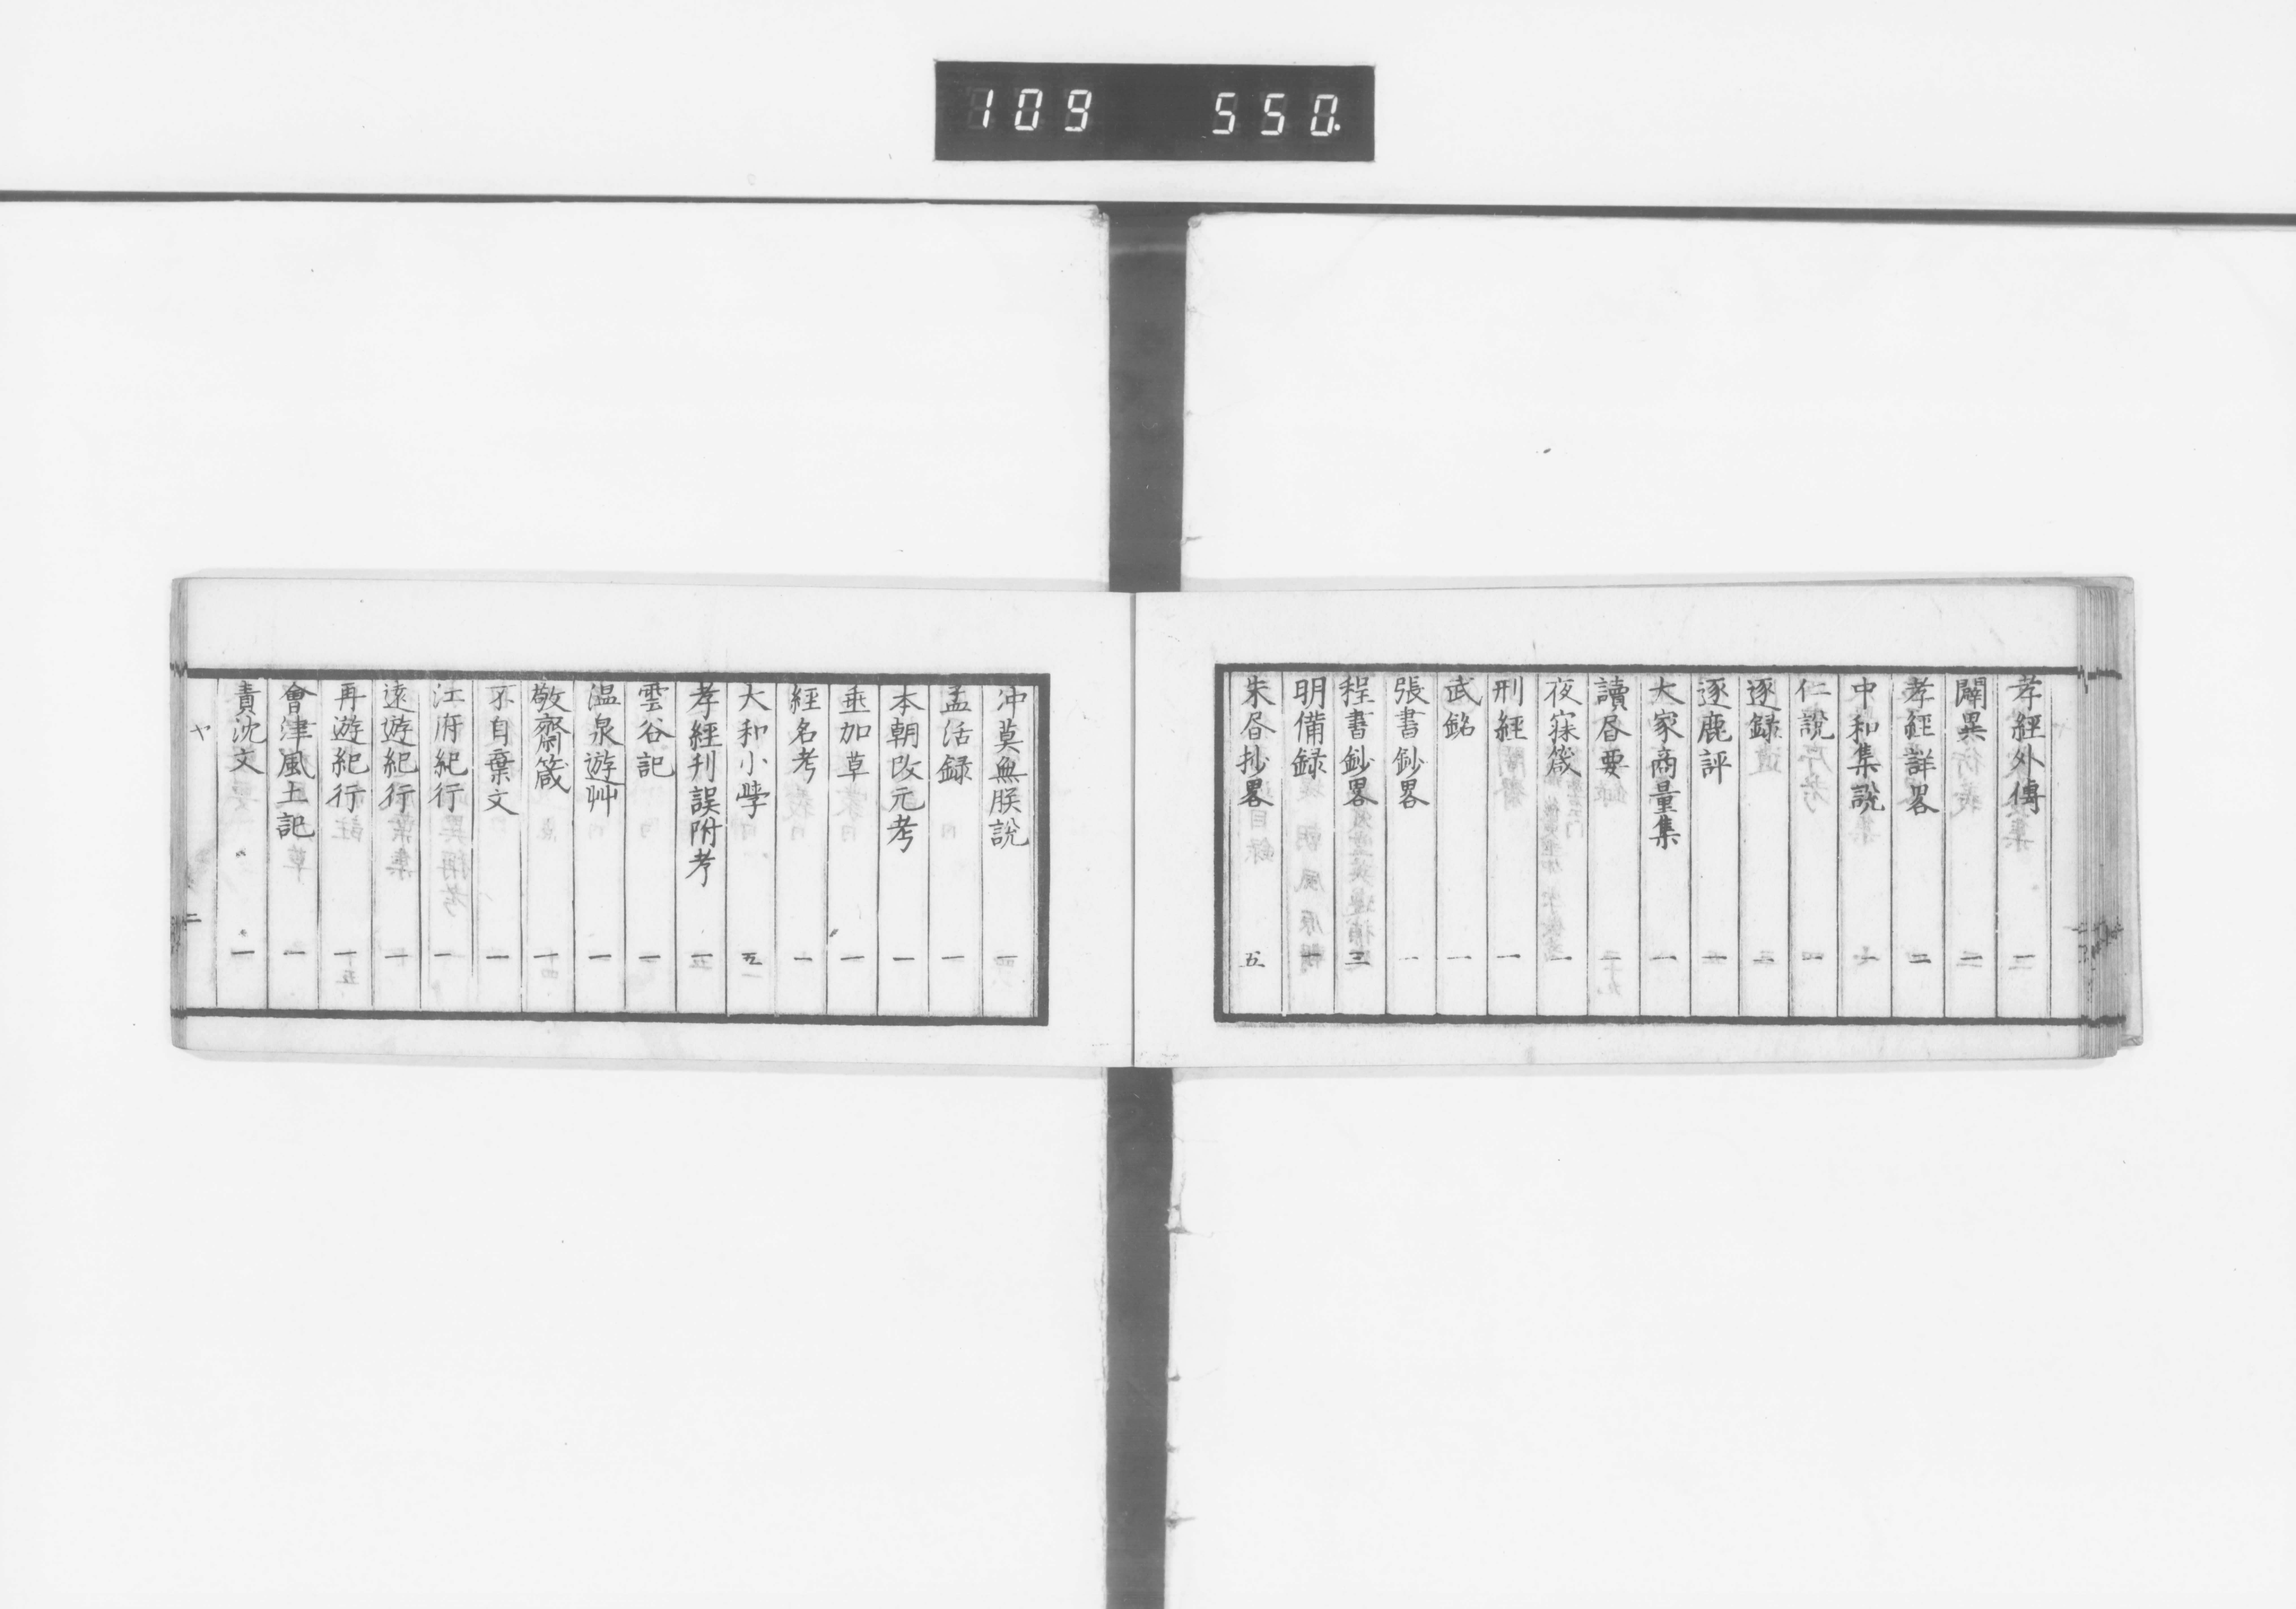 109 550.
孝經外傳 二
闢異 一
孝經詳畧 二
中和集說 一
仁說 一
逐録
逐鹿評 一
大家商量集 一
讀昏要
夜寐箴 一
刑經 一
武銘 一
張書鈔畧 一
程書鈔畧 三
明備録 一
朱昏抄畧 五
沖莫無朕說 一
孟活録 一
本朝改元考 一
垂加草 一
經名考 一
大和小學 五
孝經刊誤附考 一
雲谷記 一
温泉遊艸 一
敬齋箴 一
不自棄文 一
江府紀行 一
遠遊紀行 一
再遊紀行 一
會津風土記 一
責沈文 一
ヤ
二